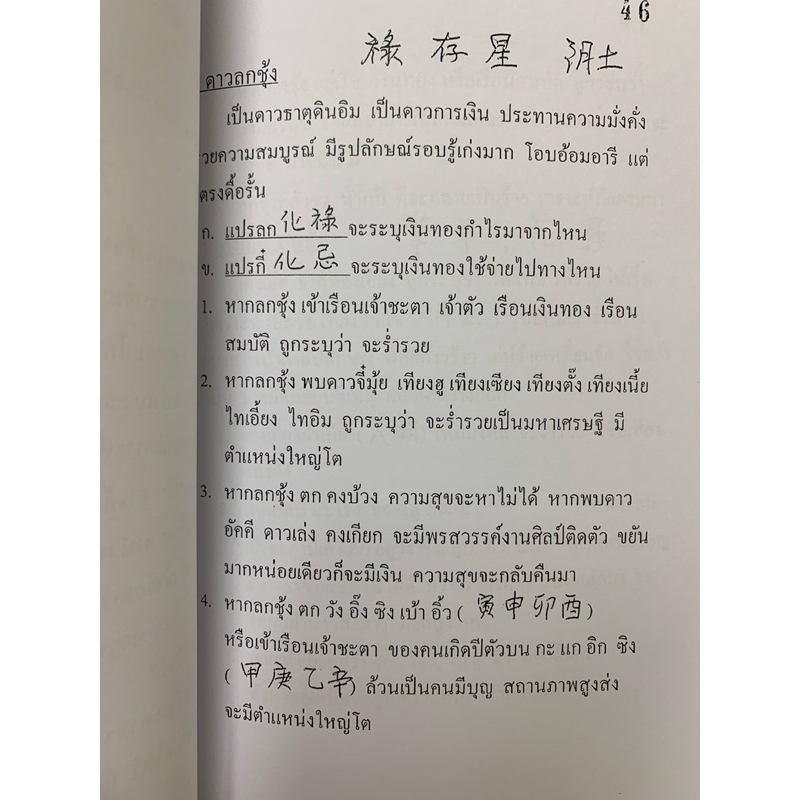 46
祿存星 阴土
ดาวลกชุ้ง
เป็นดาวธาตุดินอิม เป็นดาวการเงิน ประทานความมั่งคั่ง
วยความสมบูรณ์ มีรูปลักษณ์รอบรู้เก่งมาก โอบอ้อมอารี แต่
ตรงดื้อรั้น
ก. แปรลก 化祿 จะระบุเงินทองกำไรมาจากไหน
ข. แปรกี๋ 化忌 จะระบุเงินทองใช้จ่ายไปทางไหน
1. หากลกชุ้ง เข้าเรือนเจ้าชะตา เจ้าตัว เรือนเงินทอง เรือน
สมบัติ ถูกระบุว่า จะร่ำรวย
2. หากลกชุ้ง พบดาวจี๋มุ้ย เทียงฮู เทียงเซียง เทียงตั๊ง เทียงเนี้ย
ไทเอี้ยง ไทอิม ถูกระบุว่า จะร่ำรวยเป็นมหาเศรษฐี มี
ตำแหน่งใหญ่โต
3. หากลกชุ้ง ตก คงบ้วง ความสุขจะหาไม่ได้ หากพบดาว
อัคคี ดาวเล่ง คงเกียก จะมีพรสวรรค์งานศิลป์ติดตัว ขยัน
มากหน่อยเดียวก็จะมีเงิน ความสุขจะกลับคืนมา
4. หากลกชุ้ง ตก วัง อิ๊ง ซิง เบ้า อิ้ว ( 寅申卯酉 )
หรือเข้าเรือนเจ้าชะตา ของคนเกิดปีตัวบน กะ แก อิก ซิง
( 甲庚乙辛 ) ล้วนเป็นคนมีบุญ สถานภาพสูงส่ง
จะมีตำแหน่งใหญ่โต